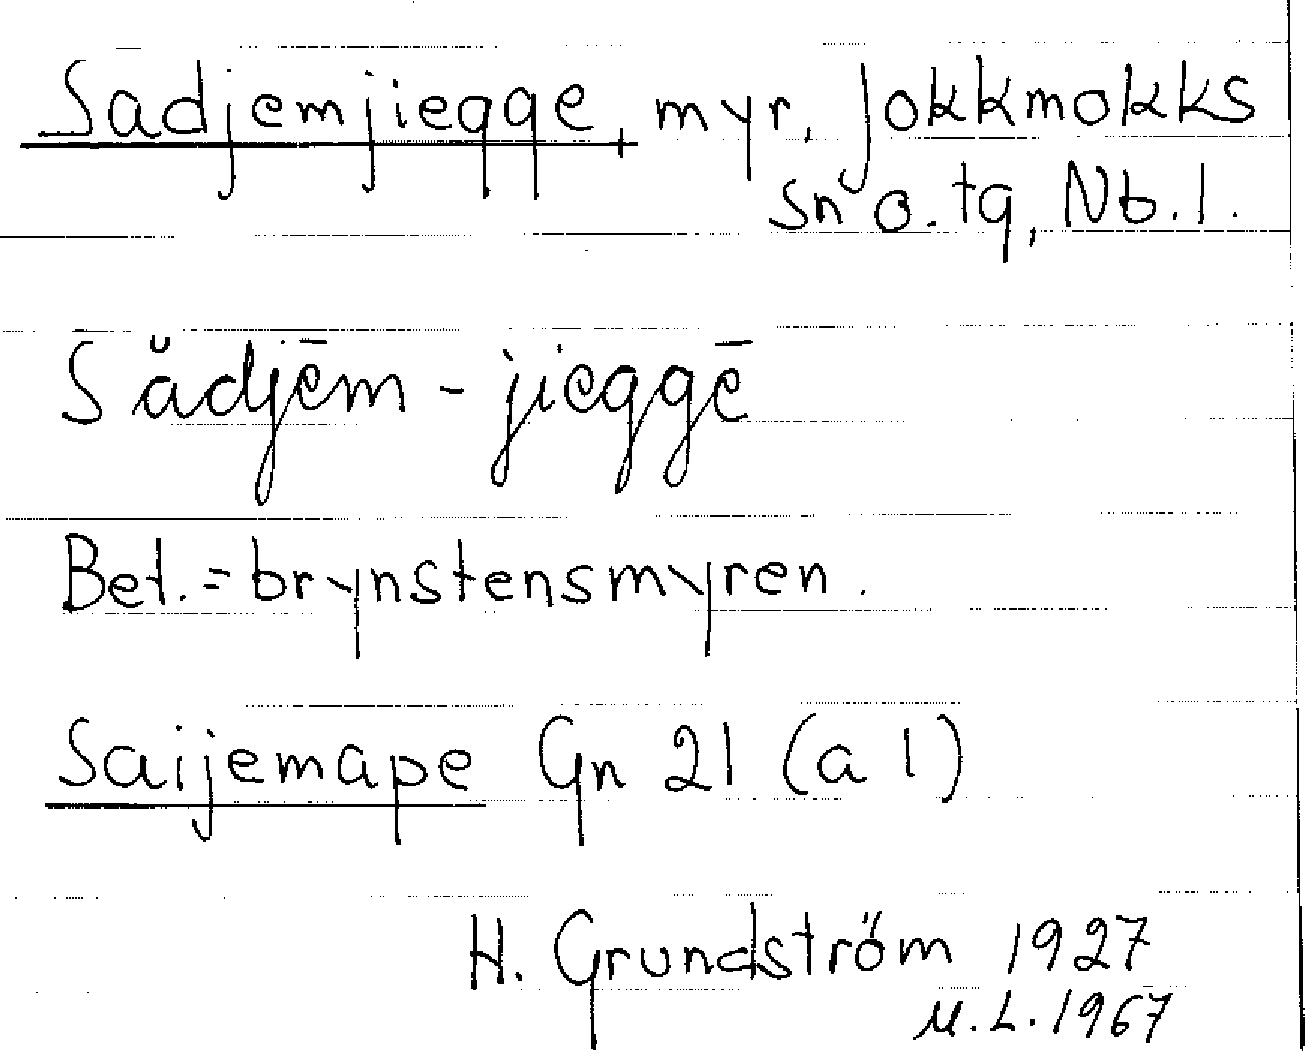 Sadjemjiegge, myr, Jokkmokks
sn o. tg, Nb. l.
Sădjēm-jieggē
Bet. = brynstensmyren.
Saijemape Gn 21 (a 1)
H. Grundström 1927
M.L. 1967